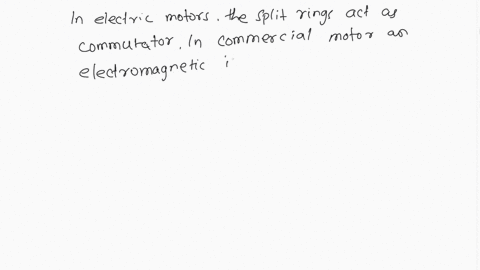 In electric motors. the split rings act as
commutator. In commercial motor an
electromagnetic i